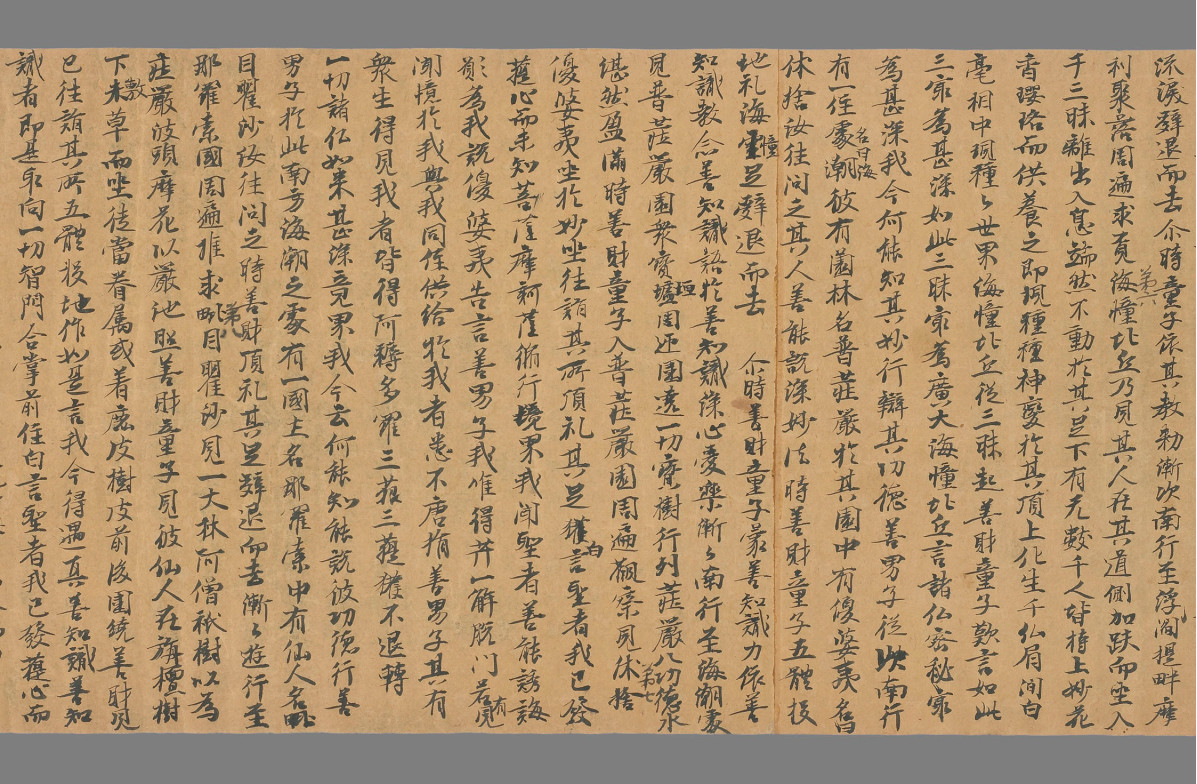 流淚辞退而去尒時童子依其教勑漸次南行至浮閻提畔摩
利聚落周遍求覓海幢比丘乃見其人在其道側加趺而坐入
第六
千三昧離出入息端然不動於其足下有无數千人皆持上妙花
香瓔珞而供養之即現種種神變於其頂上化生千仏眉間白
毫相中現種〻世界海幢比丘從三昧起善財童子歎言如此
三昧為甚深如此三昧冣為廣大海幢比丘言諸仏密秘冣
為甚深我今何能知其妙行辯其功德善男子從此南行
有一住處名曰海潮彼有薗林名普荘嚴於其園中有優婆夷名曰
休捨汝往問之其人善能說深妙法時善財童子五體投
地礼海幢足辞退而去 尒時善財童子蒙善知識力依善
知識教念善知識語於善知識深心愛樂漸〻南行至海潮處
見普荘嚴園衆寶垣墻周迊圍遶一切寶樹行列荘嚴八功德水
湛然盈滿時善財童子入普荘嚴園周遍觀察見休捨
第七
優婆夷坐於妙坐往詣其所頂礼其足白言聖者我已發
菩提心而未知菩薩摩訶薩脩行境界我聞聖者善能誘誨
願為我說優婆夷告言善男子我唯得一解脱門若有見
聞憶於我與我同住供給於我者悉不唐捐善男子其有
衆生得見我者皆得阿耨多羅三藐三菩提不退轉
一切諸仏如來甚深境界我今云何能知能說彼功德行善
男子於此南方海潮之處有一國土名那羅素中有仙人名毗
目瞿沙汝往問之時善財頂礼其足辞退而去漸〻遊行至
那羅素國周遍推求毗目瞿沙見一大林阿僧祇樹以為
第八
荘嚴波頭摩花以嚴池照善財童子見彼仙人在旃檀樹
下敷草而坐徒當眷属或着鹿皮樹皮前後圍繞善財見
已往詣其所五體投地作如是言我今得遇真善知識善知
識者即是取向一切智門合掌前住白言聖者我已發菩提心而